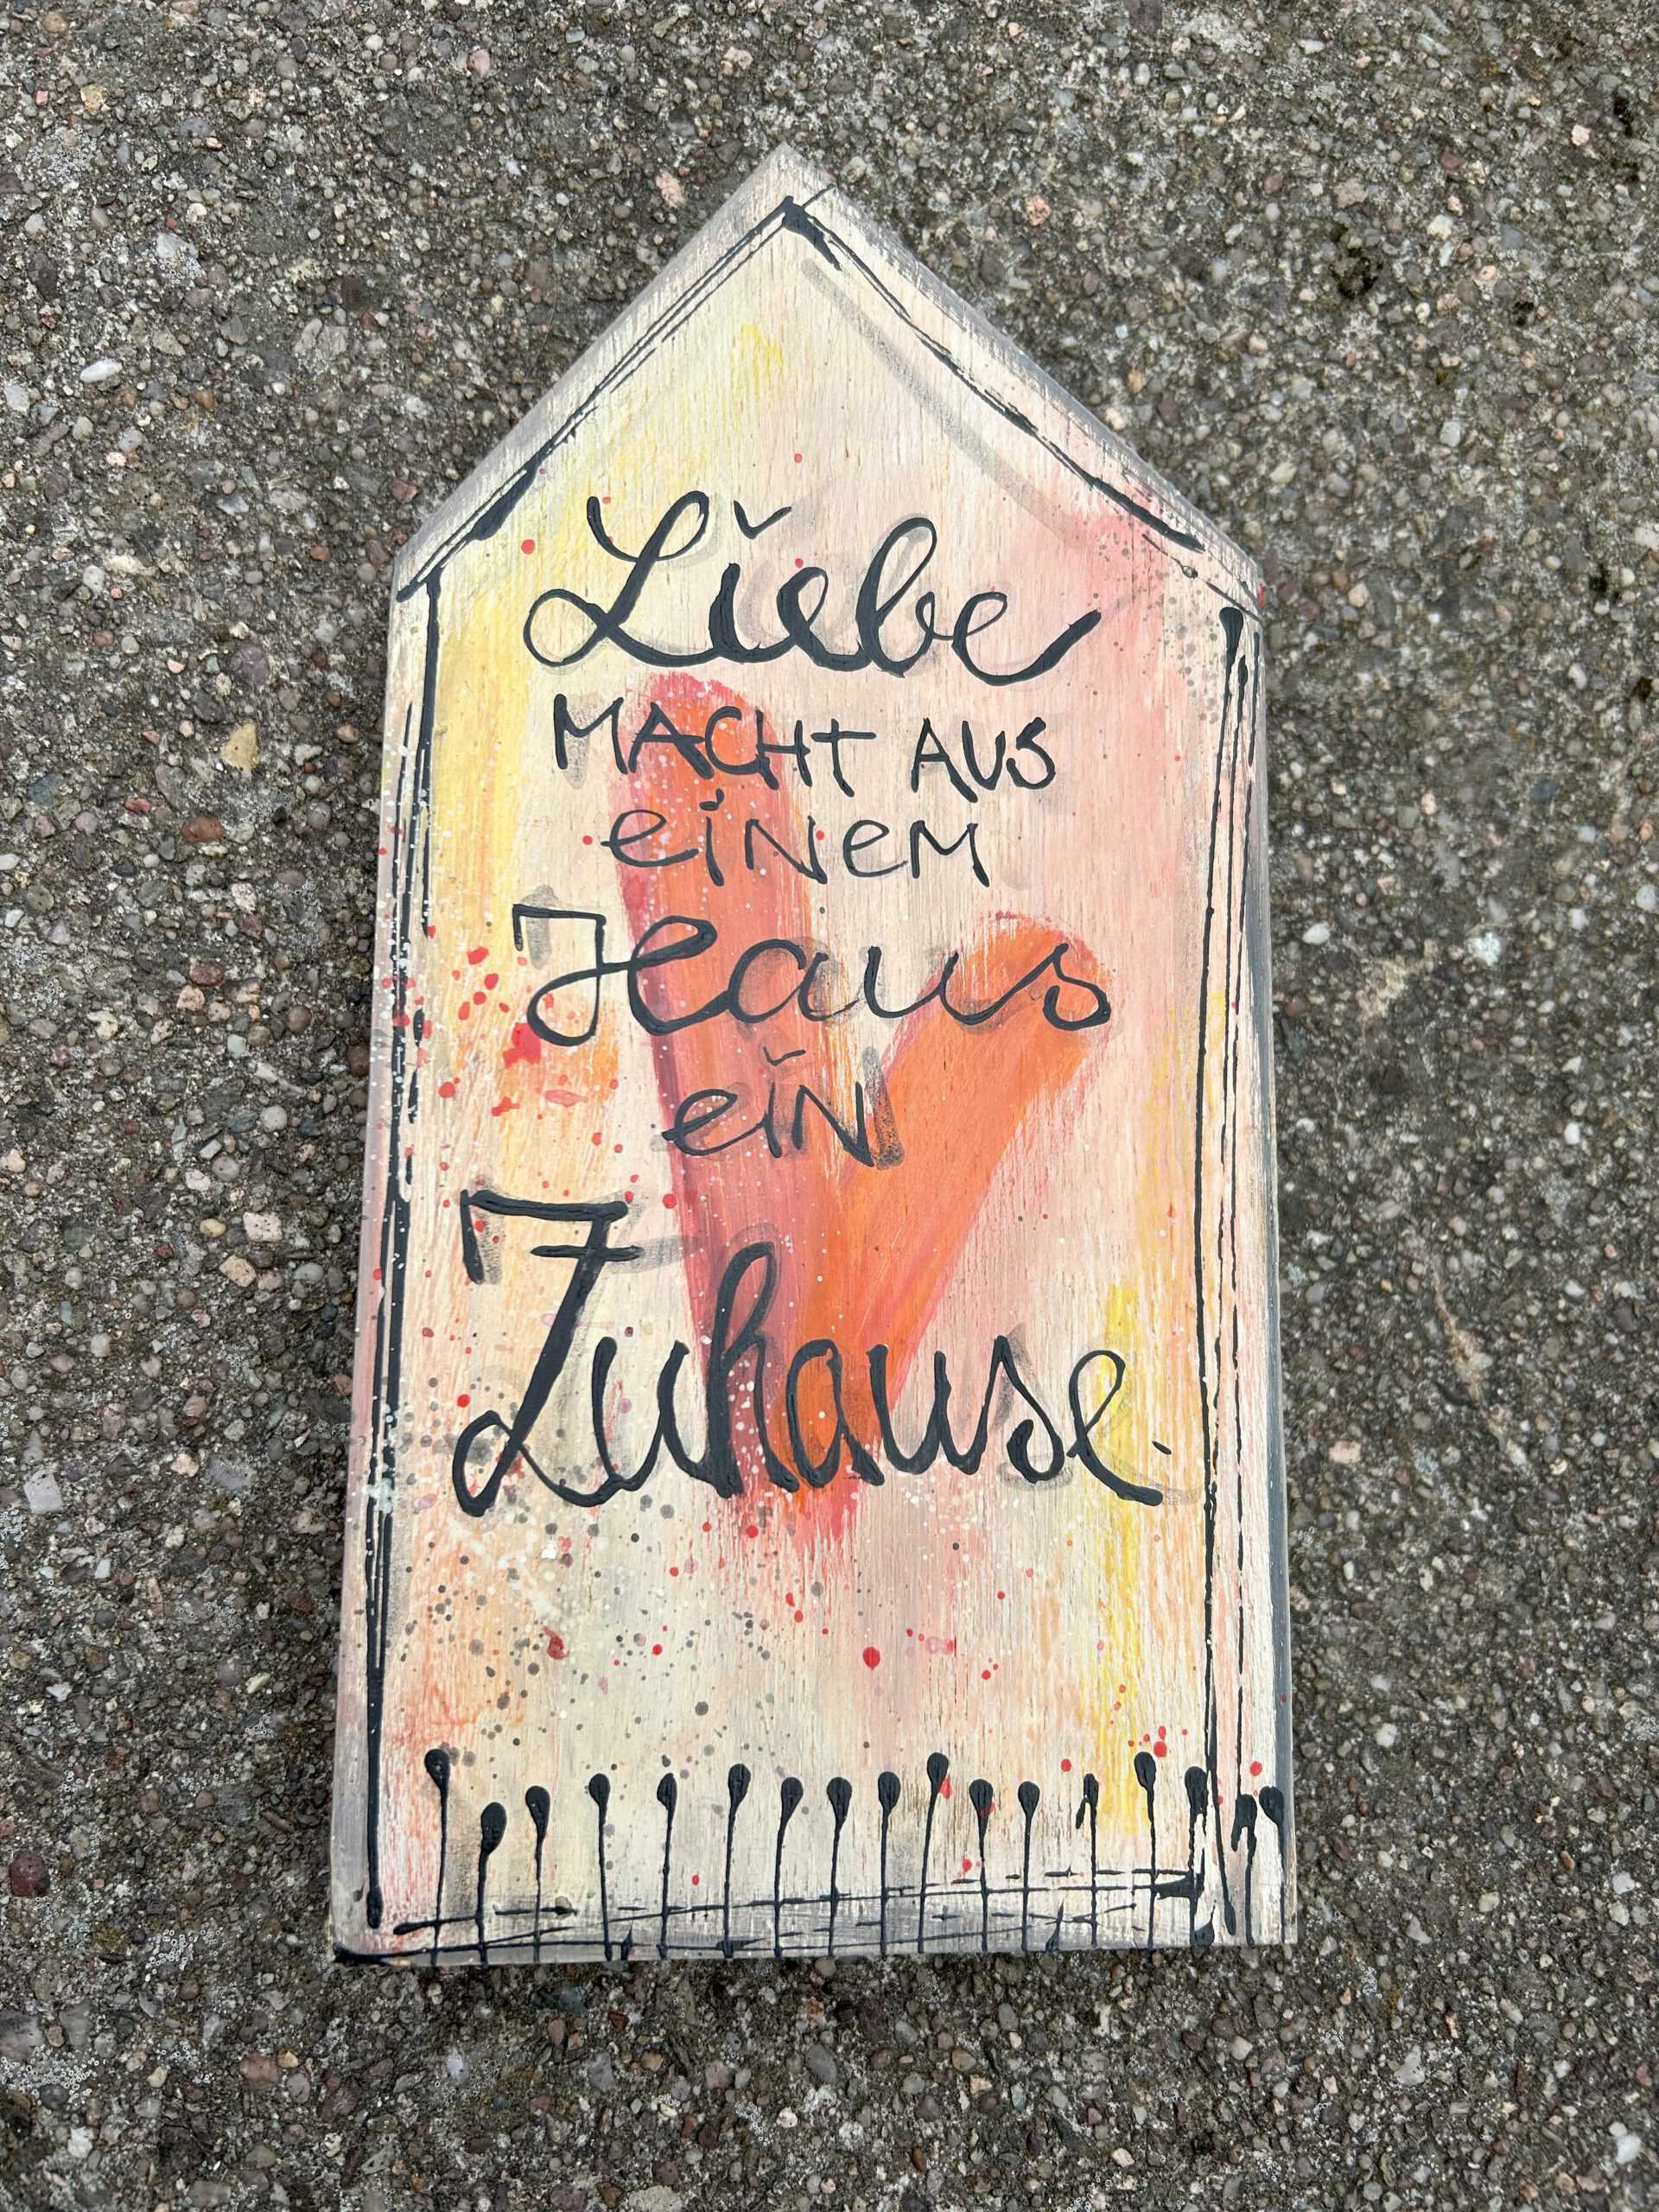 Liebe
MACHT AUS
eiNeM
Haus
eiN
Zuhause.